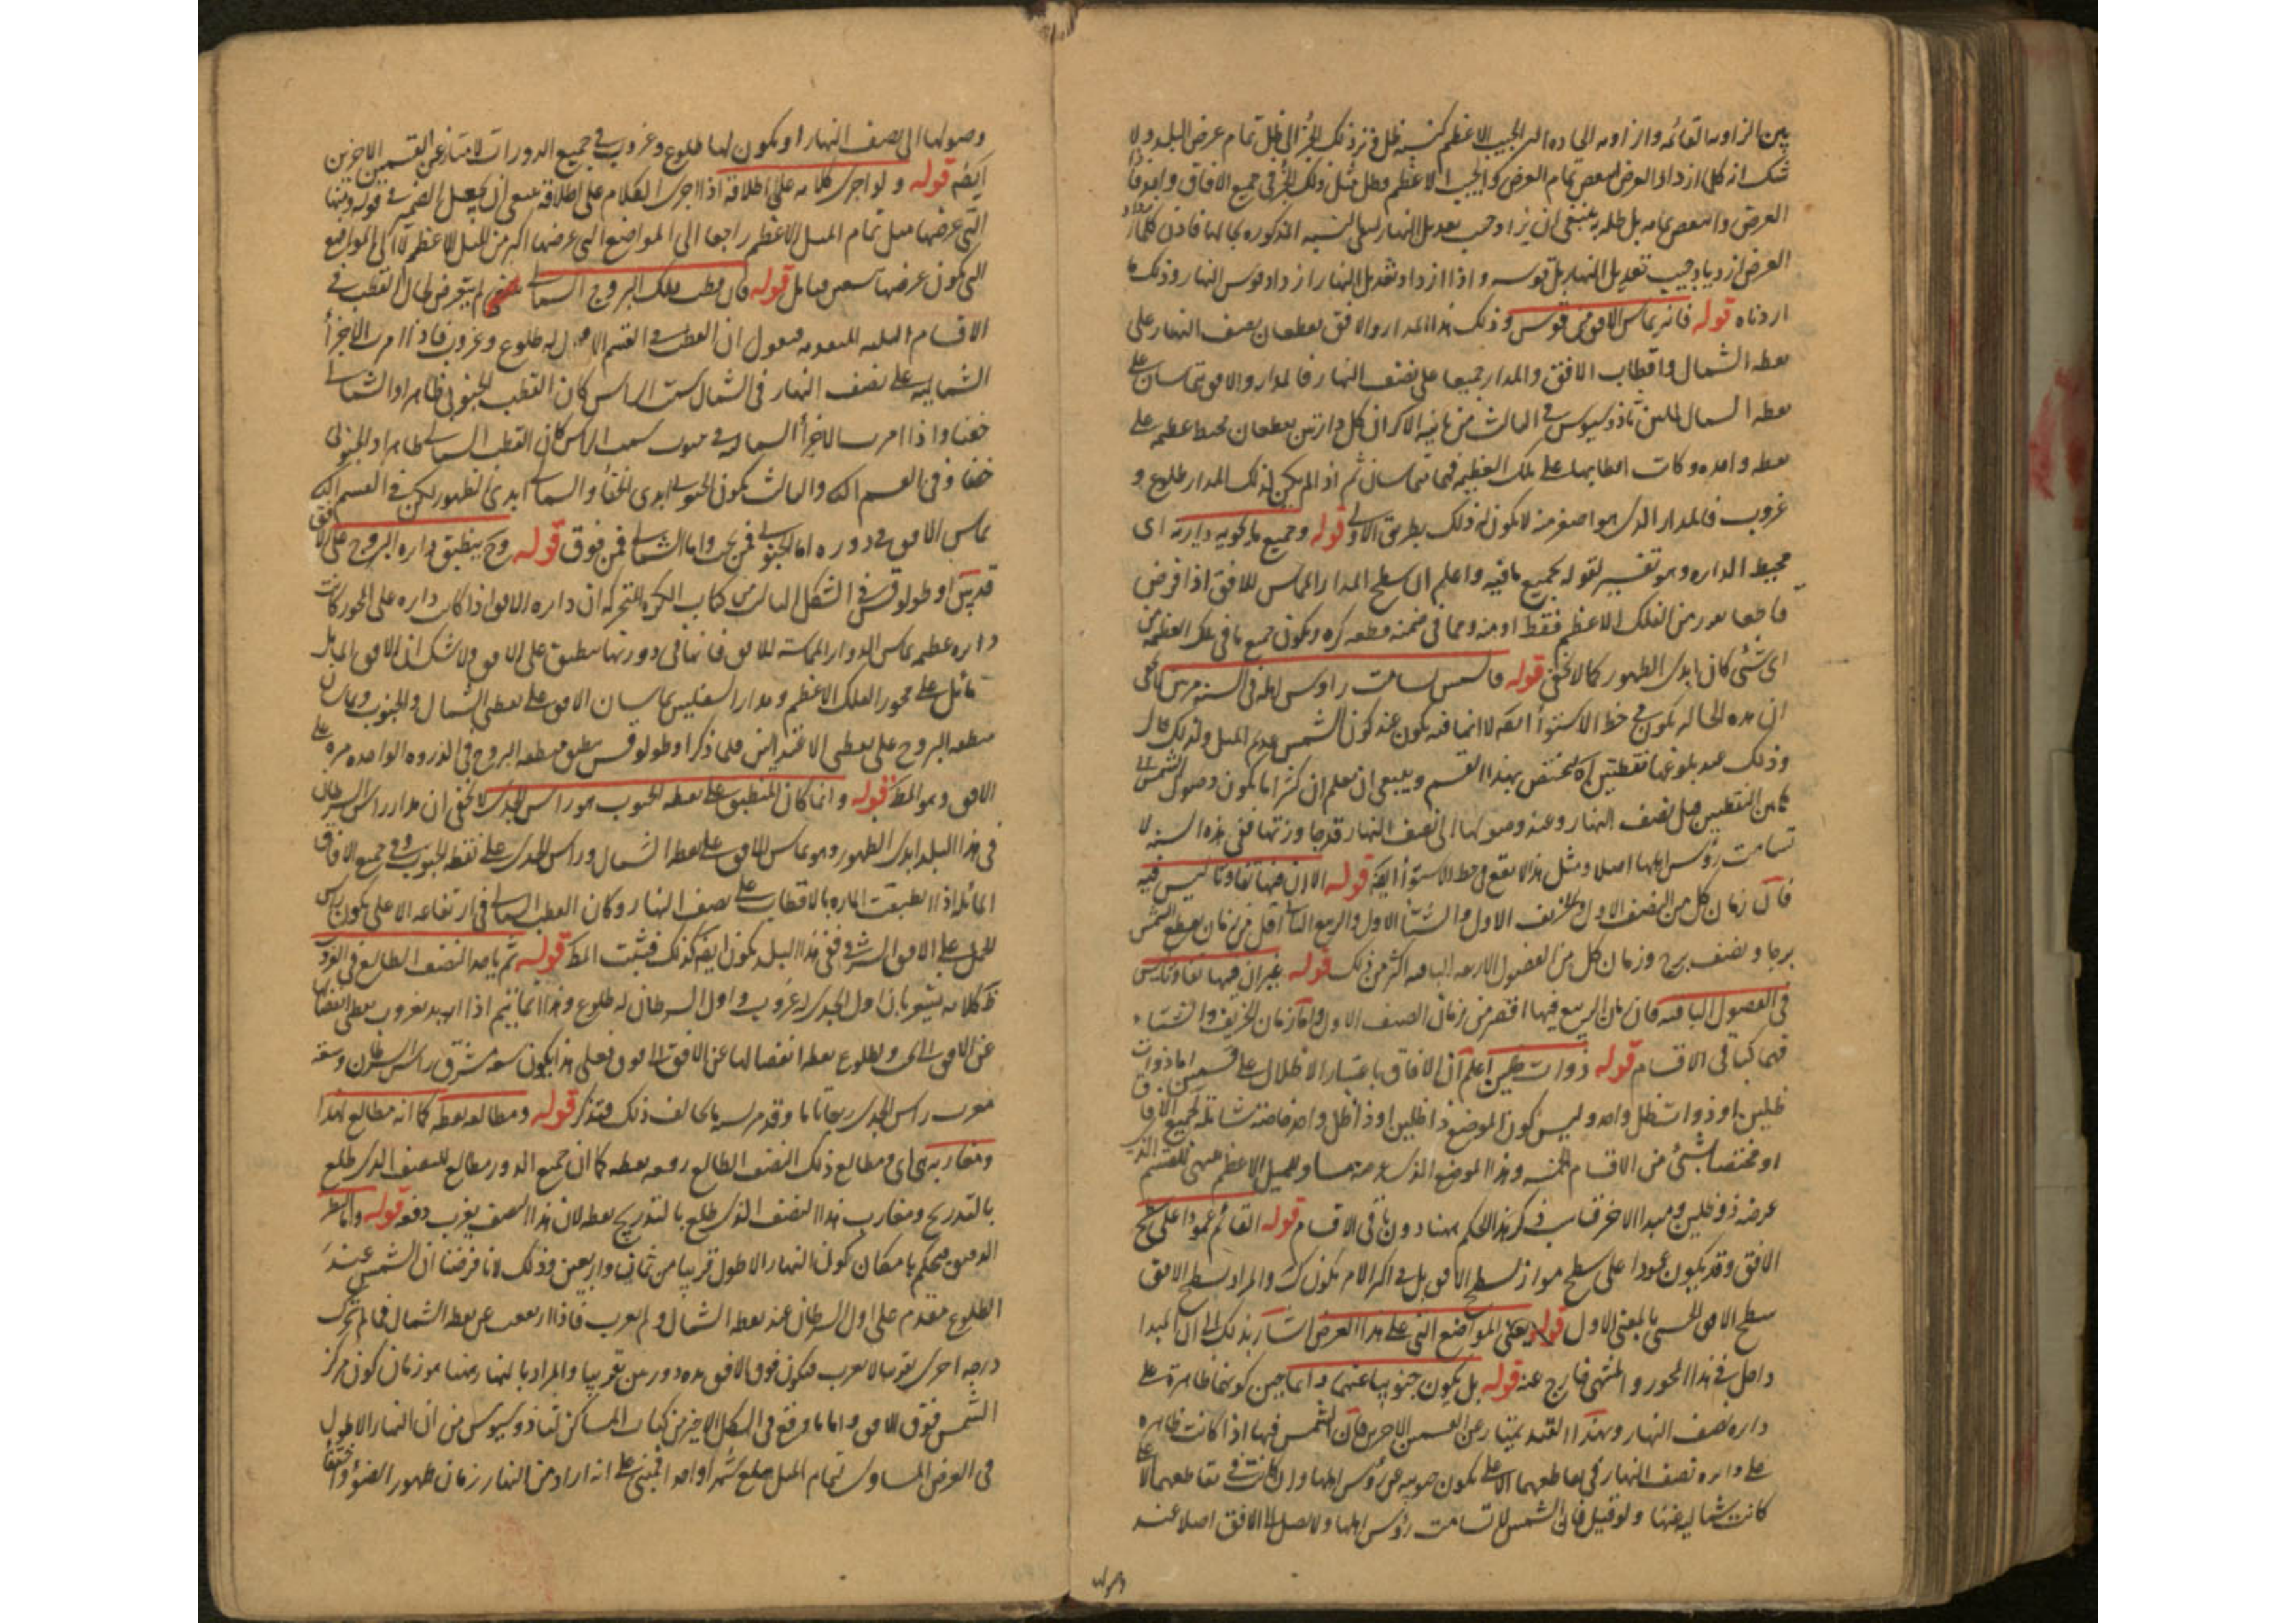 بين الزاويه القائمه والزاويه الحاده الى الجيب الاعظم كنسبه ظل ذلك الجزء الى ظل تمام عرض البلد ولا
شك انه كلما ازداد العرض نقص تمام العرض والجيب الاعظم وظل ميل ذلك الجزء في جميع الافاق واحد فاذا
العرض وانتقص تمامه بل ظله ينبغي ان يزداد جيب تعديل النهار لتبقى النسبه المذكوره بحالها فاذن كلما ازداد
العرض ازدياد جيب تعديل النهار بل قوسه واذا ازداد تعديل النهار ازداد قوس النهار وذلك ما
اردناه قوله فانه يماس الافق من فوق وذلك ان المدار والافق يقطعان نصف النهار على
نقطه الشمال واقطاب الافق والمدار جميعا على نصف النهار فالمدار والافق يتماسان على
نقطه الشمال لما بين ثاذوسيوس في الثالث من ثانيه الاكر ان كل دائرتين يقطعان محيط عظيمه على
نقطه واحده وكانت اقطابهما على تلك العظيمه فهما متماسان ثم اذا لم يكن لذلك المدار طلوع و
غروب فالمدار الذي هو اصغر منه لا يكون له ذلك بطريق الاولى قوله وجميع ما يحويه دايرته اى
محيط الدايره وهو تفسير لقوله بجميع ما فيه واعلم ان سطح المدار المماس للافق اذا فرض
قاطعا من الفلك الاعظم فقط او منه ومما في ضمنه قطعه كره ويكون جميع ما في تلك القطعه من
اى شئ كان ابدى الظهور كما لا يخفى قوله فالشمس تسامت رؤس اهله في السنه مرتين لا يخفى
ان هذه الحاله يكون في خط الاستوا ايضا لا انها فيه يكون عند كون الشمس عديم الميل ولذلك قال
وذلك عند بلوغها نقطتين اه ليختص بهذا القسم وينبغي ان يعلم ان كثيرا ما يكون وصول الشمس الى
هاتين النقطتين قبل نصف النهار وعند وصولها الى نصف النهار قد جاوزتها ففي هذه السنه لا
تسامت رؤس اهلها اصلا ومثل هذا لا يقع في خط الاستوا ايضا قوله الا ان فيها تفاوتا ليس فيه
فان زمان كل من الصيف الاول والخريف الاول والشتا الاول والربيع الثاني اقل من زمان يقطع الشمس
برجا ونصف برج وزمان كل من الفصول الاربعه الباقيه اكثر من ذلك قوله غير ان فيها تفاوتا ليس
في الفصول الباقيه فان زمان الربيع فيها اقصر من زمان الصيف الاول واما زمان الخريف والشتاء
فهما كما في الاقسام قوله ذوات ظلين اعلم ان الافاق باعتبار الاظلال على قسمين اما ذوات
ظلين او ذوات ظل واحد وليس كون الموضع ذا ظلين او ذا ظل واحد خاصه شامله لجميع الافاق
او مختصا بشئ من الاقسام الخمسه وهذا الموضع الذي عرضه مساو للميل الاعظم منتهى للقسم الذي
عرضه ذو ظلين ومبدا الاخر فناسب ذكر هذا الحكم هنا دون باقي الاقسام قوله القائم عمودا على سطح
الافق وقد يكون عمودا على سطح مواز لسطح الافق بل في اكثر الامر يكون كذلك والمراد بسطح الافق
سطح الافق الحسي بالمعنى الاول قوله يعني المواضع التي على هذا العرض اشار بذلك الى ان المبدا
داخل في هذا المحور والمنتهى خارج عنه قوله بل يكون جنوبيا عنها دائما حين كونها ظاهرة على
دايره نصف النهار وبهذا القيد يمتاز عن القسمين الاخرين فان الشمس فيها اذا كانت ظاهره
على دايره نصف النهار في تقاطعهما الاعلى يكون جنوبيه عن رؤس اهلها وان كانت في تقاطعهما الاسفل
كانت شماليه عنها ولو قيل فان الشمس لا تسامت رؤس اهلها ولا تصل الى الافق اصلا عند
وصولها
وصولها الى نصف النهار او يكون لها طلوع وغروب في جميع الدورات لامتاز عن القسمين الاخرين
ايضا قوله ولو اجرى كلامه على اطلاقه اذا اجرى الكلام على اطلاقه ينبغي ان يجعل الضمير في قوله ومنها
التي عرضها مثل تمام الميل الاعظم راجعا الى المواضع التي عرضها اكثر من الميل الاعظم لا الى المواضع
التي يكون عرضها قوله فان قطب فلك البروج الشمالي لم يتعرض لحال القطب في
الاقسام الثلثه المتقدمه فنقول ان القطب في القسم الاول له طلوع وغروب فاذا مرت الاجزا
الشماليه على نصف النهار في الشمال سمت الراس كان القطب الجنوبي ظاهرا والشمالي
خفيا واذا مرت الاجزأ الشماليه في جنوب سمت الراس كان القطب الشمالي ظاهرا والجنوبي
خفيا وفي القسم الثاني والثالث يكون الجنوبي ابدى الخفأ والشمالي ابدى الظهور لكن في القسم الثاني
يماس الافق في دوره اما الجنوبي فمن تحت واما الشمالي فمن فوق قوله وح ينطبق دايره البروج على الافق
قد بين اوطولوقس في الشكل الثالث من كتاب الكره المتحركه ان دايره الافق اذا كانت دايره على المحور كانت
دايره عظيمه تماس الدوائر المماسة للافق فانها في دورتها تنطبق على الافق ولا شك ان الافق المائل
مائل على محور الفلك الاعظم ومدارا المنقلبين يماسان الافق على نقطتي الشمال والجنوب ويماسان
منطقه البروج على نقطتي الانقلابين فلما ذكر اوطولوقس ينطبق منطقه البروج في الدوره الواحده مره على
الافق وهو المط قوله وانما كان المنطبق على نقطه الجنوب هو راس الجدى لا يخفى ان مدار راس السرطان
في هذا البلد ابدى الظهور وهو يماس الافق على نقطه الشمال وراس الجدى على نقطه الجنوب وفي جميع الافاق
المائله اذا انطبقت الماره بالاقطاب على نصف النهار وكان القطب الشمالي في ارتفاعه الاعلى يكون راس
الحمل على الافق الشرقي ففي هذا البلد يكون ايضا كذلك فثبت المط قوله ثم ياخذ النصف الطالع في الغروب
ظ كلامه يشعر بان اول الجدى له غروب واول السرطان له طلوع وهذا انما يتم اذا اريد بغروب نقطه انفصالها
عن الافق الى وبطلوع نقطه انفصالها عن الافق الى فوق فعلى هذا يكون سعة مشرق راس السرطان وسعة
مغرب راس الجدى ربعا تاما وقد مر منه ما يخالف ذلك فتذكر قوله ومطالعه نقطه كما انه مطالع لهذا
ومغاربه اى ومطالع ذلك النصف الطالع دفعه نقطه كما ان جميع الدور مطالع للنصف الذى طلع
بالتدريج ومغارب هذا النصف الذى طلع بالتدريج نقطه لان هذا النصف يغرب دفعه قوله واما النظر
الدقيق فيحكم بامكان كون النهار الاطول قريبا من ثمان واربعين وذلك لانا فرضنا ان الشمس عند
الطلوع متقدم على اول السرطان عند نقطه الشمال ولم تغرب فاذا ارتفعت عن نقطه الشمال فما لم تتحرك
درجه اخرى تقريبا لا تغرب فتكون فوق الافق مده دورتين تقريبا والمراد بالنهار ههنا هو زمان كون مركز
الشمس فوق الافق واما ما وقع في الشكل الاخير من كتاب المساكن لثاذوسيوس من ان النهار الاطول
في العرض المساوى لتمام الميل يبلغ شهرا واحدا فمبنى على انه اراد من النهار زمان ظهور الضوء واختفأ